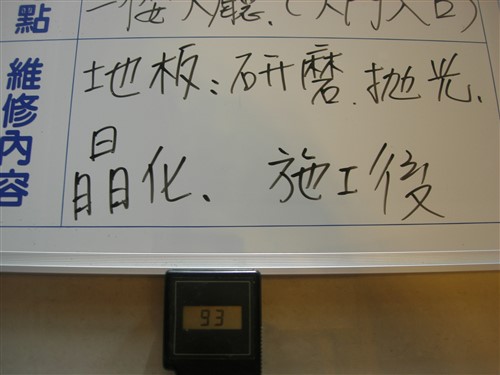 點 一樓大廳.(大門入口)
維修內容 地板:研磨.拋光.
晶化、施工後
93